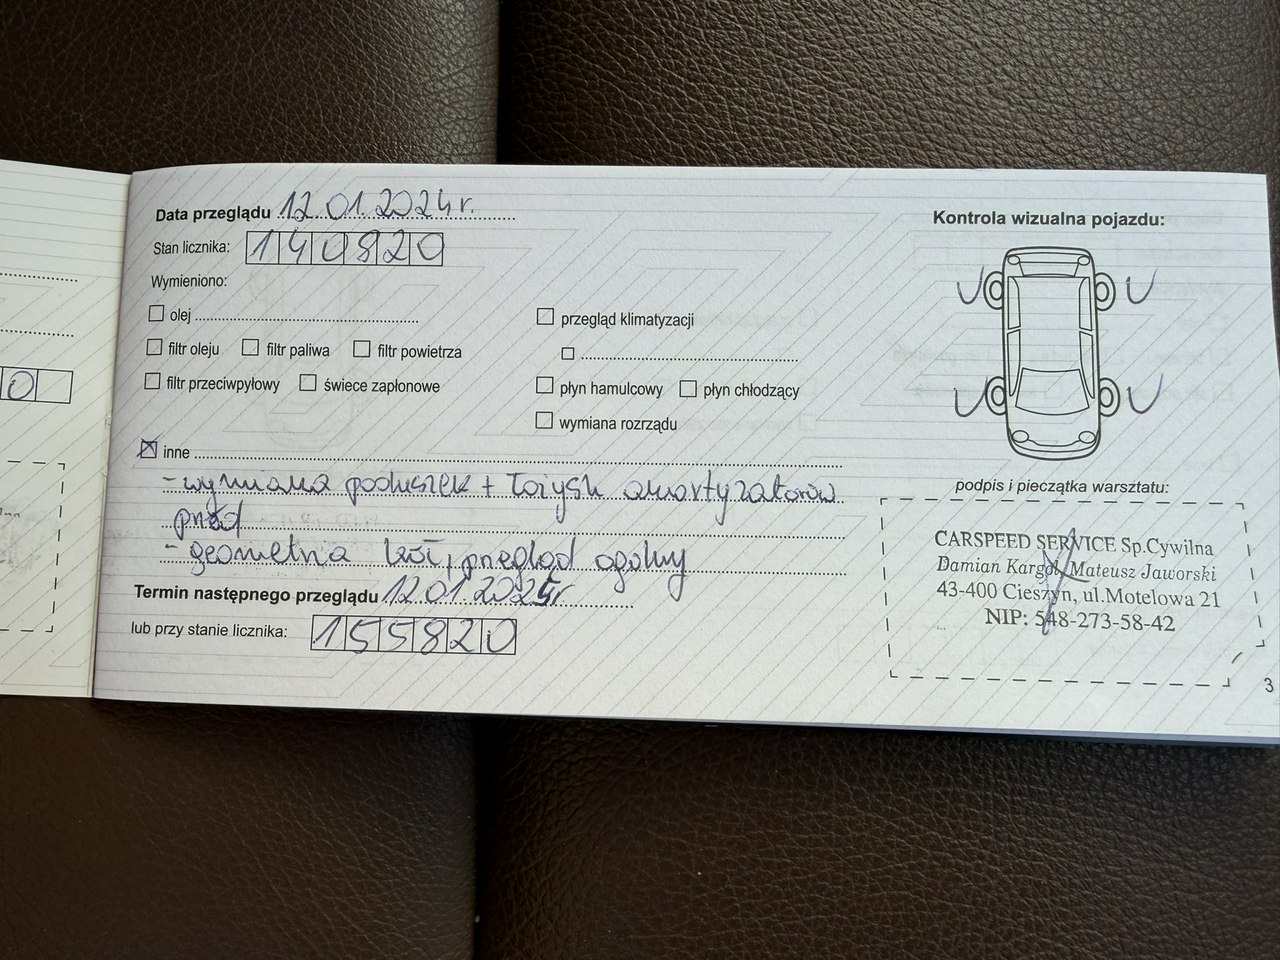 0
Data przeglądu 12.01.2024 r.
Stan licznika: 140820
Wymieniono:
olej
filtr oleju filtr paliwa filtr powietrza
filtr przeciwpyłowy świece zapłonowe
przegląd klimatyzacji
płyn hamulcowy płyn chłodzący
wymiana rozrządu
inne
- wymiana poduszek + łożysk amortyzatorów
przód
- geometria kół, przegląd ogólny
Termin następnego przeglądu 12.01.2025r
lub przy stanie licznika: 155820
Kontrola wizualna pojazdu:
podpis i pieczątka warsztatu:
CARSPEED SERVICE Sp.Cywilna
Damian Kargol, Mateusz Jaworski
43-400 Cieszyn, ul.Motelowa 21
NIP: 548-273-58-42
3